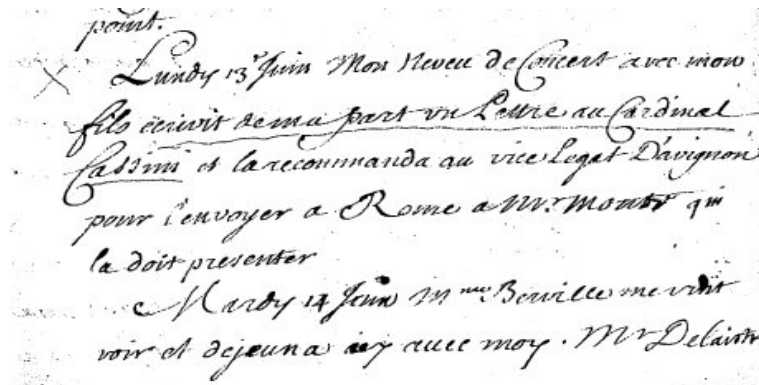 point.
Lundy 13e Juin Mon Neveu de Concert avec mon
fils écrivit de ma part un Lettre au Cardinal
Cassini et la recommanda au vice Legat D'avignon
pour l'envoyer a Rome a Mr. qui
la doit presenter
Mardy 14 Juin Mme me vint
voir et dejeuna icy avec moy. Mr